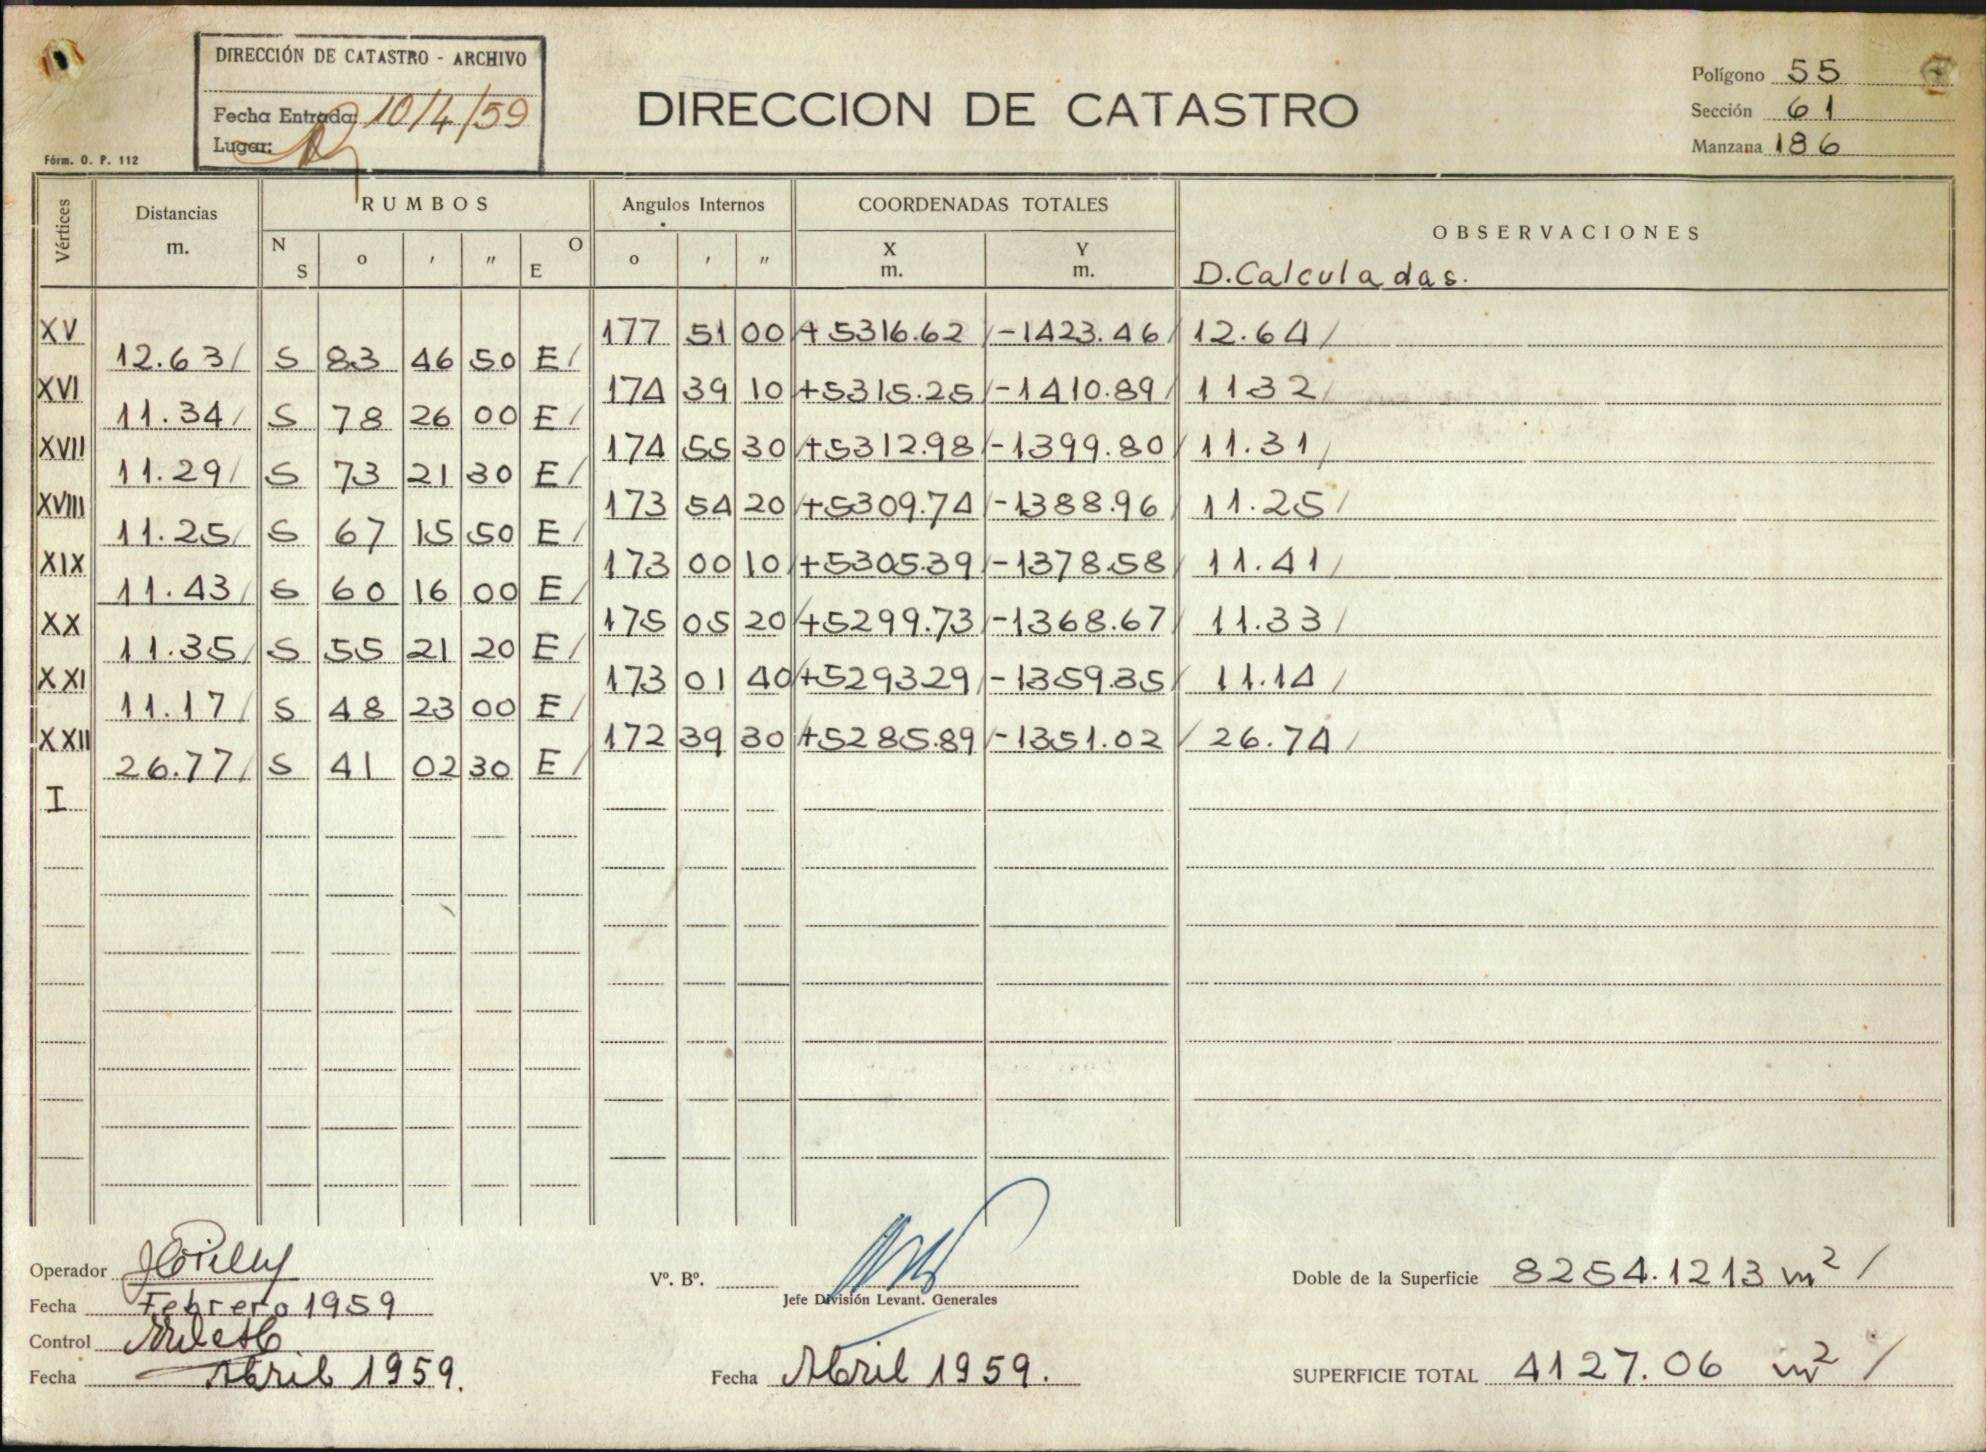 DIRECCIÓN DE CATASTRO - ARCHIVO
Fecha Entrada: 10/4/59
Lugar:
Fórm. O. P. 112
DIRECCION DE CATASTRO
Polígono 55
Sección 61
Manzana 186
Vértices Distancias m. RUMBOS Angulos Internos COORDENADAS TOTALES OBSERVACIONES
N S o ' " O E o ' " X m. Y m. D. Calculadas.
XV 177 51 00 +5316.62 / -1423.46 / 12.64 /
12.63 / S 83 46 50 E /
XVI 174 39 10 +5315.25 / -1410.89 / 11 32 /
11.34 / S 78 26 00 E /
XVII 174 55 30 +5312.98 / -1399.80 / 11.31 /
11.29 / S 73 21 30 E /
XVIII 173 54 20 +5309.74 / -1388.96 / 11.25 /
11.25 / S 67 15 50 E /
XIX 173 00 10 +5305.39 / -1378.58 / 11.41 /
11.43 / S 60 16 00 E /
XX 175 05 20 +5299.73 / -1368.67 / 11.33 /
11.35 / S 55 21 20 E /
XXI 173 01 40 +5293.29 / -1359.35 / 11.14 /
11.17 / S 48 23 00 E /
XXII 172 39 30 +5285.89 / -1351.02 / 26.74 /
26.77 / S 41 02 30 E /
I
Operador
Fecha Febrero 1959
Control
Fecha Abril 1959.
Vº. Bº.
Jefe División Levant. Generales
Fecha Abril 1959.
Doble de la Superficie 8254.1213 m² /
SUPERFICIE TOTAL 4127.06 m² /